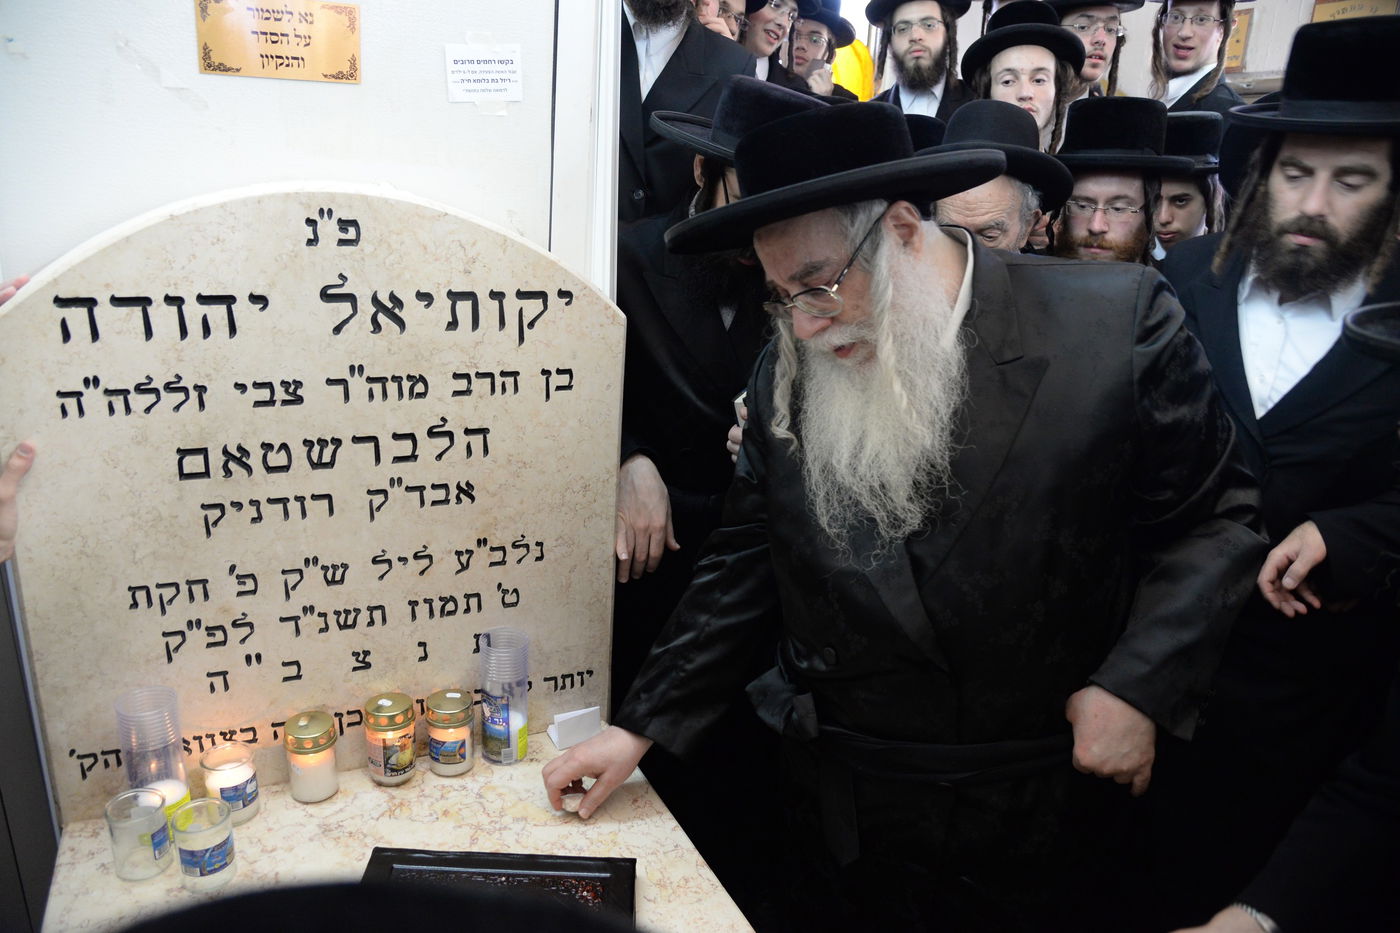 נא לשמור
על הסדר
והנקיון
בקשו רחמים מרובים
פ"נ
יקותיאל יהודה
בן הרב מוה"ר צבי זללה"ה
הלברשטאם
אבד"ק רודניק
נלב"ע ליל ש"ק פ' חקת
ט' תמוז תשנ"ד לפ"ק
ת נ צ ב " ה
יותר
הק'